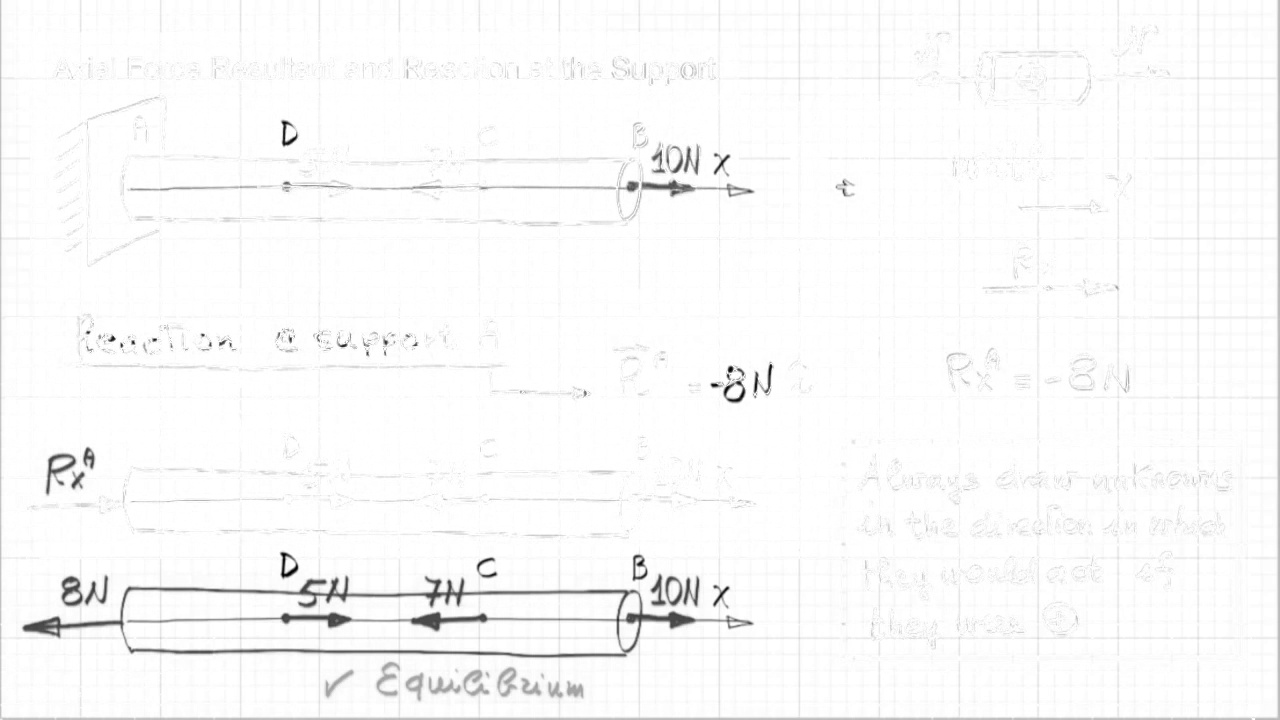 Axial Force Resultant and Reaction at the Support
N N
A D 5N 7N C B 10N x
x
Rx
Reaction @ support A
R^A = -8N i
Rx^A = -8N
Rx^A D 5N 7N C B 10N x
Always draw unknowns
in the direction in which
they would act if
they were ⊕
8N D 5N 7N C B 10N x
✓ Equilibrium